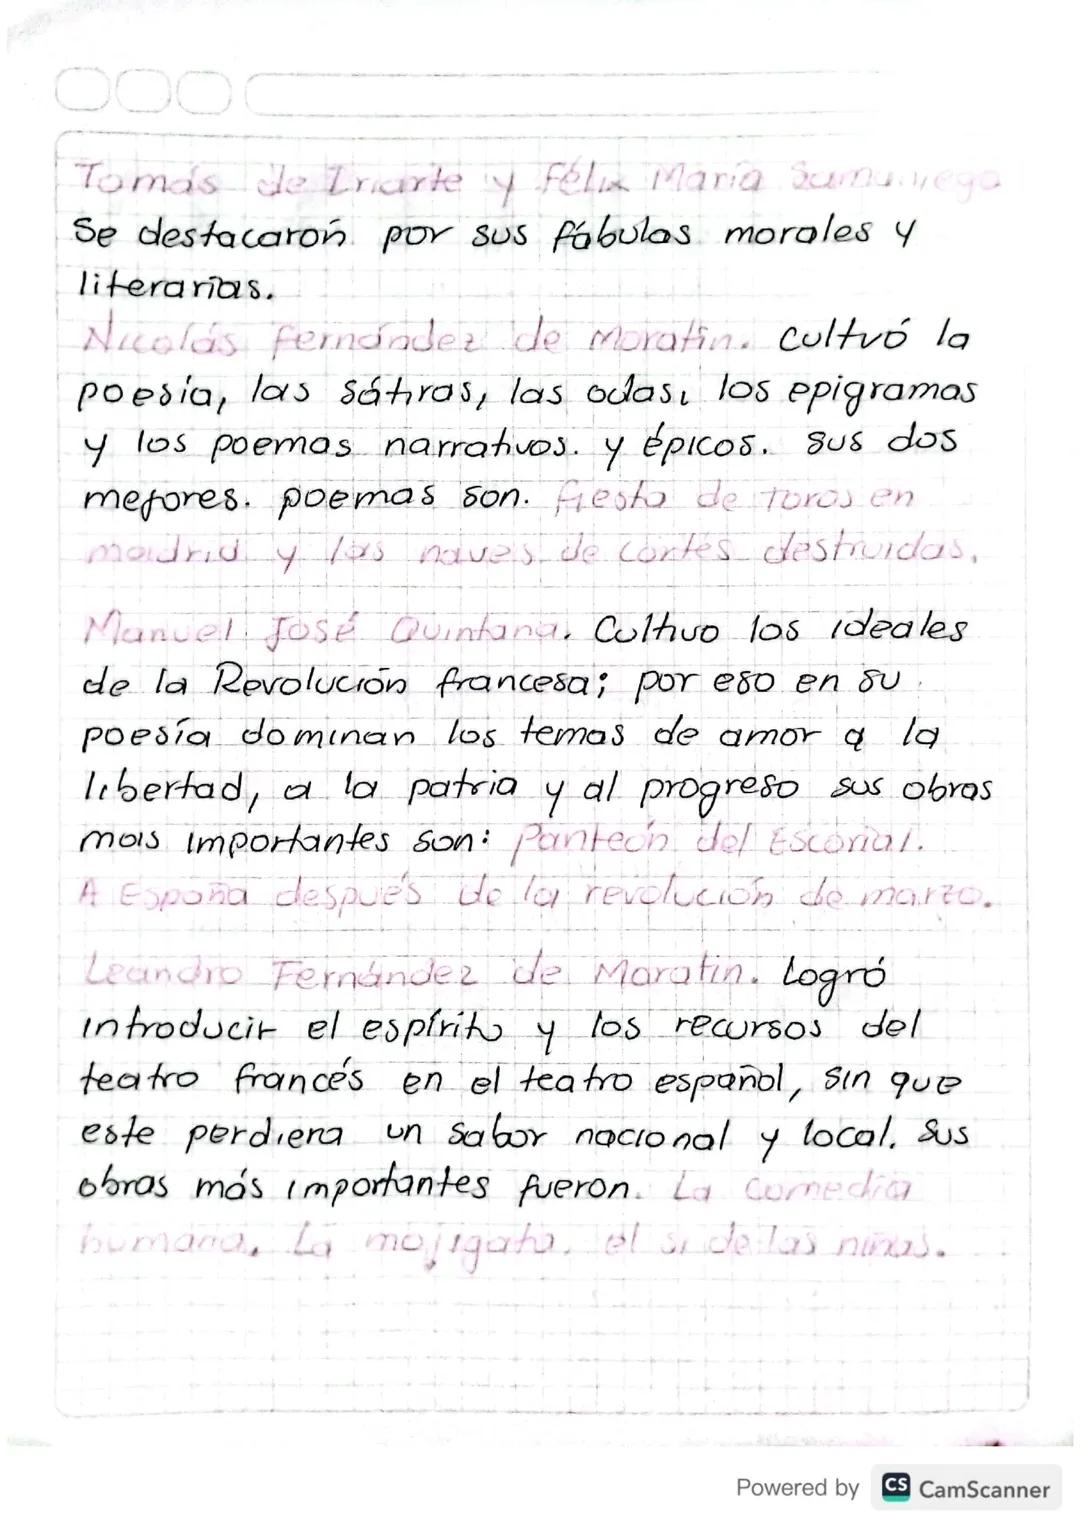 Tomás de Iriarte y Félix María Samaniego
Se destacaron por sus fábulas morales y
literarias.
Nicolás Fernández de Moratín. Cultivó la
poesía, las sátiras, las odas, los epigramas
y los poemas narrativos. y épicos. sus dos
mejores. poemas son. fiesta de toros en
madrid y las naves de cortés destruidas.
Manuel José Quintana. Cultivo los ideales
de la Revolución francesa; por eso en su
poesía dominan los temas de amor a la
libertad, a la patria y al progreso sus obras
mas importantes son: Panteón del Escorial.
A España después de la revolución de marzo.
Leandro Fernández de Moratin. Logró
introducir el espíritu y los recursos del
teatro francés en el teatro español, sin que
este perdiera un sabor nacional y local. Sus
obras más importantes fueron. La comedia
humana. La mojigata. el si de las niñas.
Powered by CS CamScanner